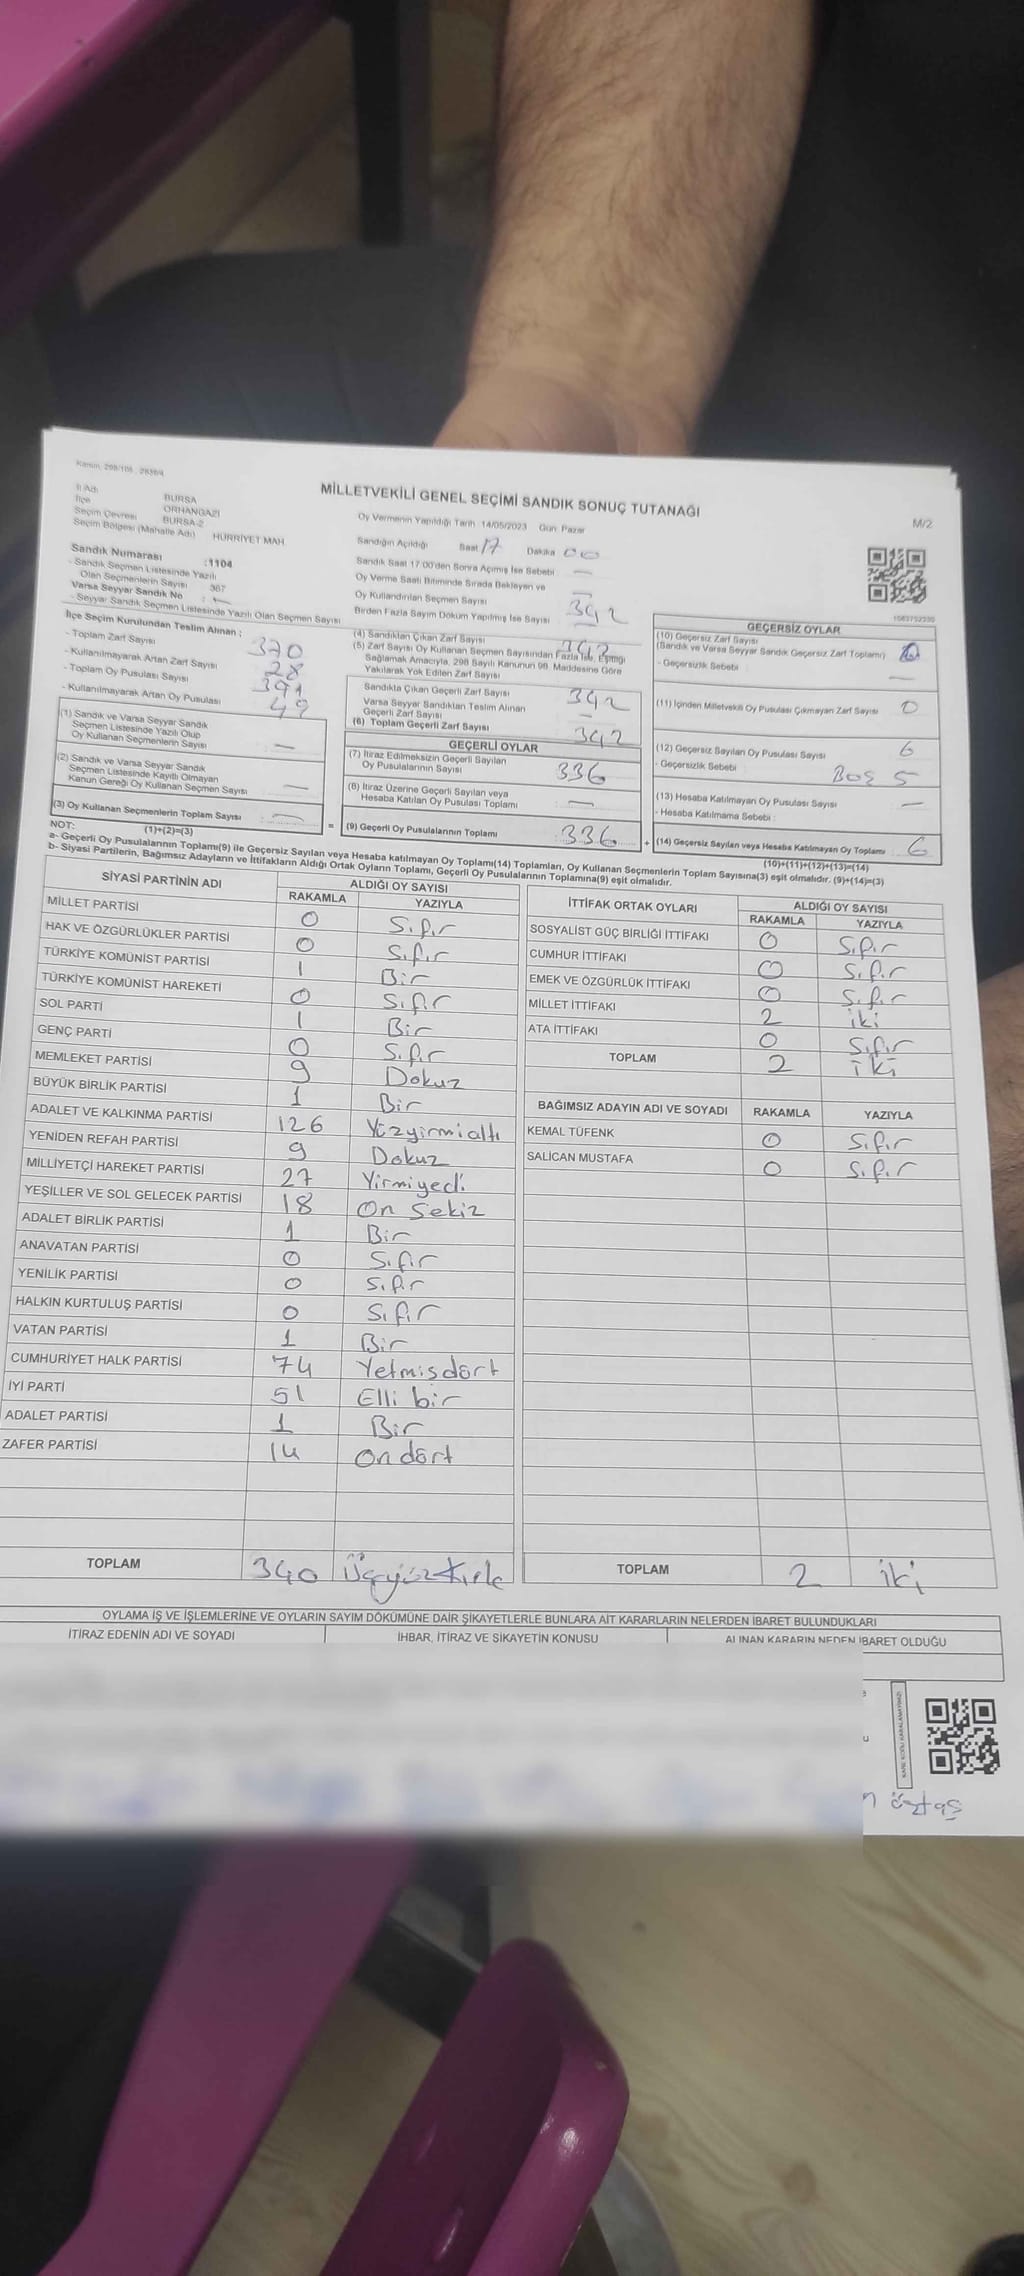 Kanun: 298/105 , 2839/4
MİLLETVEKİLİ GENEL SEÇİMİ SANDIK SONUÇ TUTANAĞI
M/2
İl Adı BURSA
İlçe ORHANGAZİ
Seçim Çevresi BURSA-2
Seçim Bölgesi (Mahalle Adı) HÜRRİYET MAH.
Sandık Numarası :1104
- Sandık Seçmen Listesinde Yazılı
Olan Seçmenlerin Sayısı 367
Varsa Seyyar Sandık No : —
- Seyyar Sandık Seçmen Listesinde Yazılı Olan Seçmen Sayısı
Oy Vermenin Yapıldığı Tarih 14/05/2023 Gün: Pazar
Sandığın Açıldığı Saat 17 Dakika 00
Sandık Saat 17.00'den Sonra Açılmış İse Sebebi —
Oy Verme Saati Bitiminde Sırada Bekleyen ve
Oy Kullandırılan Seçmen Sayısı —
Birden Fazla Sayım Döküm Yapılmış İse Sayısı 342
1063752330
İlçe Seçim Kurulundan Teslim Alınan ;
- Toplam Zarf Sayısı 370
- Kullanılmayarak Artan Zarf Sayısı 28
- Toplam Oy Pusulası Sayısı 391
- Kullanılmayarak Artan Oy Pusulası 49
(1) Sandık ve Varsa Seyyar Sandık
Seçmen Listesinde Yazılı Olup
Oy Kullanan Seçmenlerin Sayısı : —
(2) Sandık ve Varsa Seyyar Sandık
Seçmen Listesinde Kayıtlı Olmayan
Kanun Gereği Oy Kullanan Seçmen Sayısı : —
(3) Oy Kullanan Seçmenlerin Toplam Sayısı : —
(1)+(2)=(3)
(4) Sandıktan Çıkan Zarf Sayısı 342
(5) Zarf Sayısı Oy Kullanan Seçmen Sayısından Fazla İse, Eşitliği
Sağlamak Amacıyla, 298 Sayılı Kanunun 98. Maddesine Göre
Yakılarak Yok Edilen Zarf Sayısı
Sandıkta Çıkan Geçerli Zarf Sayısı 342
Varsa Seyyar Sandıktan Teslim Alınan
Geçerli Zarf Sayısı —
(6) Toplam Geçerli Zarf Sayısı 342
GEÇERLİ OYLAR
(7) İtiraz Edilmeksizin Geçerli Sayılan
Oy Pusulalarının Sayısı 336
(8) İtiraz Üzerine Geçerli Sayılan veya
Hesaba Katılan Oy Pusulası Toplamı : —
(9) Geçerli Oy Pusulalarının Toplamı 336
GEÇERSİZ OYLAR
(10) Geçersiz Zarf Sayısı
(Sandık ve Varsa Seyyar Sandık Geçersiz Zarf Toplamı)
- Geçersizlik Sebebi : —
(11) İçinden Milletvekili Oy Pusulası Çıkmayan Zarf Sayısı 0
(12) Geçersiz Sayılan Oy Pusulası Sayısı 6
- Geçersizlik Sebebi : BOŞ 5
(13) Hesaba Katılmayan Oy Pusulası Sayısı —
- Hesaba Katılmama Sebebi :
(14) Geçersiz Sayılan veya Hesaba Katılmayan Oy Toplamı : 6
(10)+(11)+(12)+(13)=(14)
NOT:
a- Geçerli Oy Pusulalarının Toplamı(9) ile Geçersiz Sayılan veya Hesaba katılmayan Oy Toplamı(14) Toplamları, Oy Kullanan Seçmenlerin Toplam Sayısına(3) eşit olmalıdır. (9)+(14)=(3)
b- Siyasi Partilerin, Bağımsız Adayların ve İttifakların Aldığı Ortak Oyların Toplamı, Geçerli Oy Pusulalarının Toplamına(9) eşit olmalıdır.
SİYASİ PARTİNİN ADI ALDIĞI OY SAYISI
RAKAMLA YAZIYLA
MİLLET PARTİSİ 0 Sıfır
HAK VE ÖZGÜRLÜKLER PARTİSİ 0 Sıfır
TÜRKİYE KOMÜNİST PARTİSİ 1 Bir
TÜRKİYE KOMÜNİST HAREKETİ 0 Sıfır
SOL PARTİ 1 Bir
GENÇ PARTİ 0 Sıfır
MEMLEKET PARTİSİ 9 Dokuz
BÜYÜK BİRLİK PARTİSİ 1 Bir
ADALET VE KALKINMA PARTİSİ 126 Yüzyirmialtı
YENİDEN REFAH PARTİSİ 9 Dokuz
MİLLİYETÇİ HAREKET PARTİSİ 27 Yirmiyedi
YEŞİLLER VE SOL GELECEK PARTİSİ 18 On Sekiz
ADALET BİRLİK PARTİSİ 1 Bir
ANAVATAN PARTİSİ 0 Sıfır
YENİLİK PARTİSİ 0 Sıfır
HALKIN KURTULUŞ PARTİSİ 0 Sıfır
VATAN PARTİSİ 1 Bir
CUMHURİYET HALK PARTİSİ 74 Yetmişdört
İYİ PARTİ 51 Elli bir
ADALET PARTİSİ 1 Bir
ZAFER PARTİSİ 14 On dört
TOPLAM 340
İTTİFAK ORTAK OYLARI ALDIĞI OY SAYISI
RAKAMLA YAZIYLA
SOSYALİST GÜÇ BİRLİĞİ İTTİFAKI 0 Sıfır
CUMHUR İTTİFAKI 0 Sıfır
EMEK VE ÖZGÜRLÜK İTTİFAKI 0 Sıfır
MİLLET İTTİFAKI 2 iki
ATA İTTİFAKI 0 Sıfır
TOPLAM 2 iki
BAĞIMSIZ ADAYIN ADI VE SOYADI RAKAMLA YAZIYLA
KEMAL TÜFENK 0 Sıfır
SALİCAN MUSTAFA 0 Sıfır
TOPLAM 2 iki
OYLAMA İŞ VE İŞLEMLERİNE VE OYLARIN SAYIM DÖKÜMÜNE DAİR ŞİKAYETLERLE BUNLARA AİT KARARLARIN NELERDEN İBARET BULUNDUKLARI
İTİRAZ EDENİN ADI VE SOYADI İHBAR, İTİRAZ VE ŞİKAYETİN KONUSU ALINAN KARARIN NEDEN İBARET OLDUĞU
KARE KODU KARALAMAYINIZ
öztaş